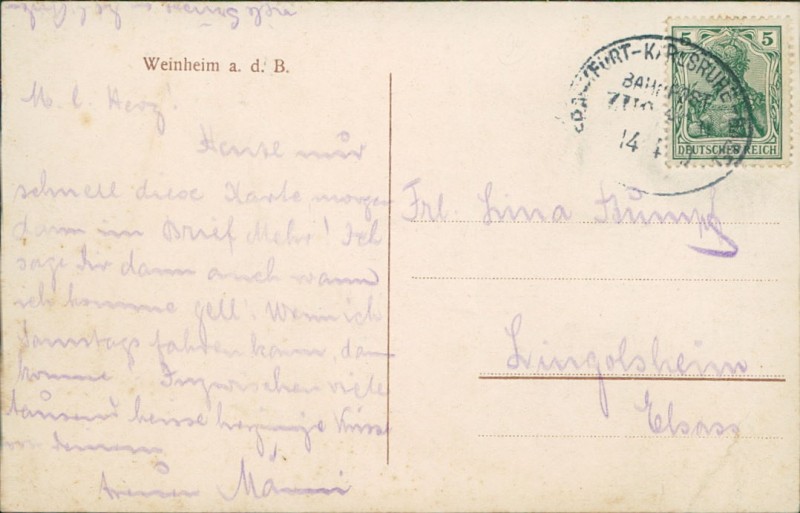 viele
Weinheim a. d. B.
M. l. Herz!
Heute nur
schnell diese Karte, morgen
dann im Brief Mehr! Ich
sage Dir dann auch wann
ich komme gell. Wenn ich
Samstags fahren kann, dan
komme Inzwischen viele
tausend heisse Küsse
von Deinem
treuen
5 5
DEUTSCHES REICH
FRANKFURT-KARLSRUHE
BAHNPOST
ZUG
14
Frl. Lina
Lingolsheim
Elsass